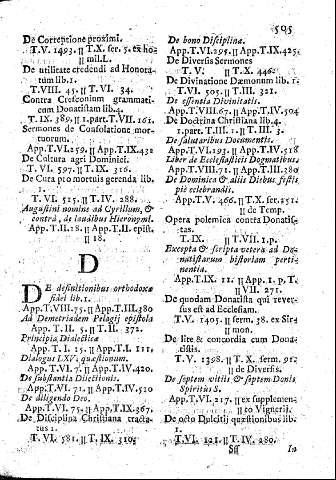 505
De Correptione proximi.
T.V. 1493. || T.X. ser. 5. ex ho-
|| mil. L.
De utilitate credendi ad Honora-
tum lib. 1.
T. VIII. 45. || T. VI. 34.
Contra Cresconium grammati-
cum Donatistam lib. 4.
T. IX. 389. || 1. part. T. VII. 161.
Sermones de Consolatione mor-
tuorum.
App. T. VI. 259. || App. T. IX. 431
De Cultura agri Dominici.
T. VI. 597. || T. IX. 316.
De Cura pro mortuis gerenda lib.
1.
T. VI. 515. || T. IV. 288.
Augustini nomine ad Cyrillum, &
contra, de laudibus Hieronymi.
App. T. II. 18. || App. T. II. epist.
|| 18.
D
DE definitionibus orthodoxæ
fidei lib. 1.
App. T. VIII. 75. || App. T. III. 380
Ad Demetriadem Pelagij epistola
App. T. II. 5. || T. II. 372.
Principia Dialecticæ
App. T. I. 15. || App. T. I. 111.
Dialogus LXV. quæstionum.
App. T. VI. 7. || App. T. IV. 420.
De substantia Dilectionis.
App. T. VI. 71. || App. T. IV. 520
De diligendo Deo.
App. T. VI. 75. || App. T. IX. 367.
De Disciplina Christiana tracta-
tus 1.
T. VI. 581. || T. IX. 310.
De bono Disciplinæ.
App. T. VI. 295. || App. T. IX. 425.
De Diversis Sermones
T. V. || T. X. 446.
De Divinatione Dæmonum lib. 1.
T. VI. 505. || T. III. 321.
De essentia Divinitatis.
App. T. VIII. 67. || App. T. IV. 504
De Doctrina Christiana lib. 4.
1. part. T. III. 1. || T. III. 3.
De salutaribus Documentis.
App. T. VI. 191. || App. T. IV. 518
Liber de Ecclesiasticis Dogmatibus
App. T. VIII. 71. || App. T. III. 280
De Dominicis & aliis Diebus festis
piè celebrandis.
App. T. V. 466. || T. X. ser. 251.
|| de Temp.
Opera polemica contra Donatis-
tas.
T. IX. || T. VII. 1. p.
Excepta & scripta vetera ad Do-
natistarum historiam perti-
nentia.
App. T. IX. 11. || App. 1. p. T.
|| VII. 271.
De quodam Donatista qui rever-
sus est ad Ecclesiam.
T. V. 1405. || ferm. 38. ex Sir-
|| mon.
De lite & concordia cum Dona-
tistis.
T. V. 1398. || T. X. ferm. 91.
|| de Diversis.
De septem vitiis & septem Donis
Spiritus S.
App. T. VI. 217. || ex supplemen-
|| to Vignerij.
De octo Dulcitij quæstionibus lib.
1.
T. VI. 121. || T. IV. 280.
Sss
In